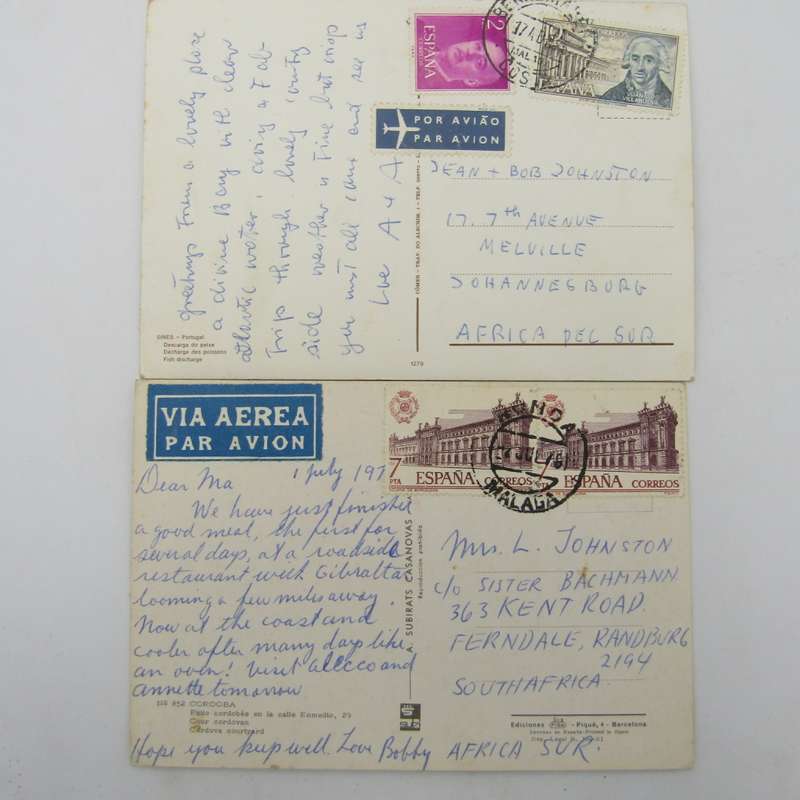 greetings from a lovely place
a divine Bay with clear
atlantic water, living
Trip through lovely county
side weather is fine but crisp
you must all come and see us
Love A + A
SINES - Portugal
Descarga do peixe
Décharge des poissons
Fish discharge
1279
2
ESPAÑA
ESPAÑA
JUAN DE VILLANUEVA
POR AVIÃO
PAR AVION
JEAN + BOB JOHNSTON
17. 7th AVENUE
MELVILLE
JOHANNESBURG
AFRICA DEL SUR
VIA AEREA
PAR AVION
7
PTA
ESPAÑA CORREOS
7
PTA
ESPAÑA CORREOS
RONDA
MALAGA
1 July 197
Dear Ma
We have just finished
a good meal, the first for
several days, at a roadside
restaurant with Gibraltar
looming a few miles away.
Now at the coast and
cooler after many days like
an oven! Visit Alecco and
Annette tomorrow
Hope you keep well. Love Bobby
852 CORDOBA
Patio cordobés en la calle Enmedio, 29
Cour cordovan
Cordova courtyard
A. SUBIRATS CASANOVAS
Reproducción prohibida
Mrs. L. JOHNSTON
c/o SISTER BACHMANN
363 KENT ROAD.
FERNDALE, RANDBURG
2194
SOUTH AFRICA.
AFRICA SUR.
Ediciones - Piqué, 4 - Barcelona